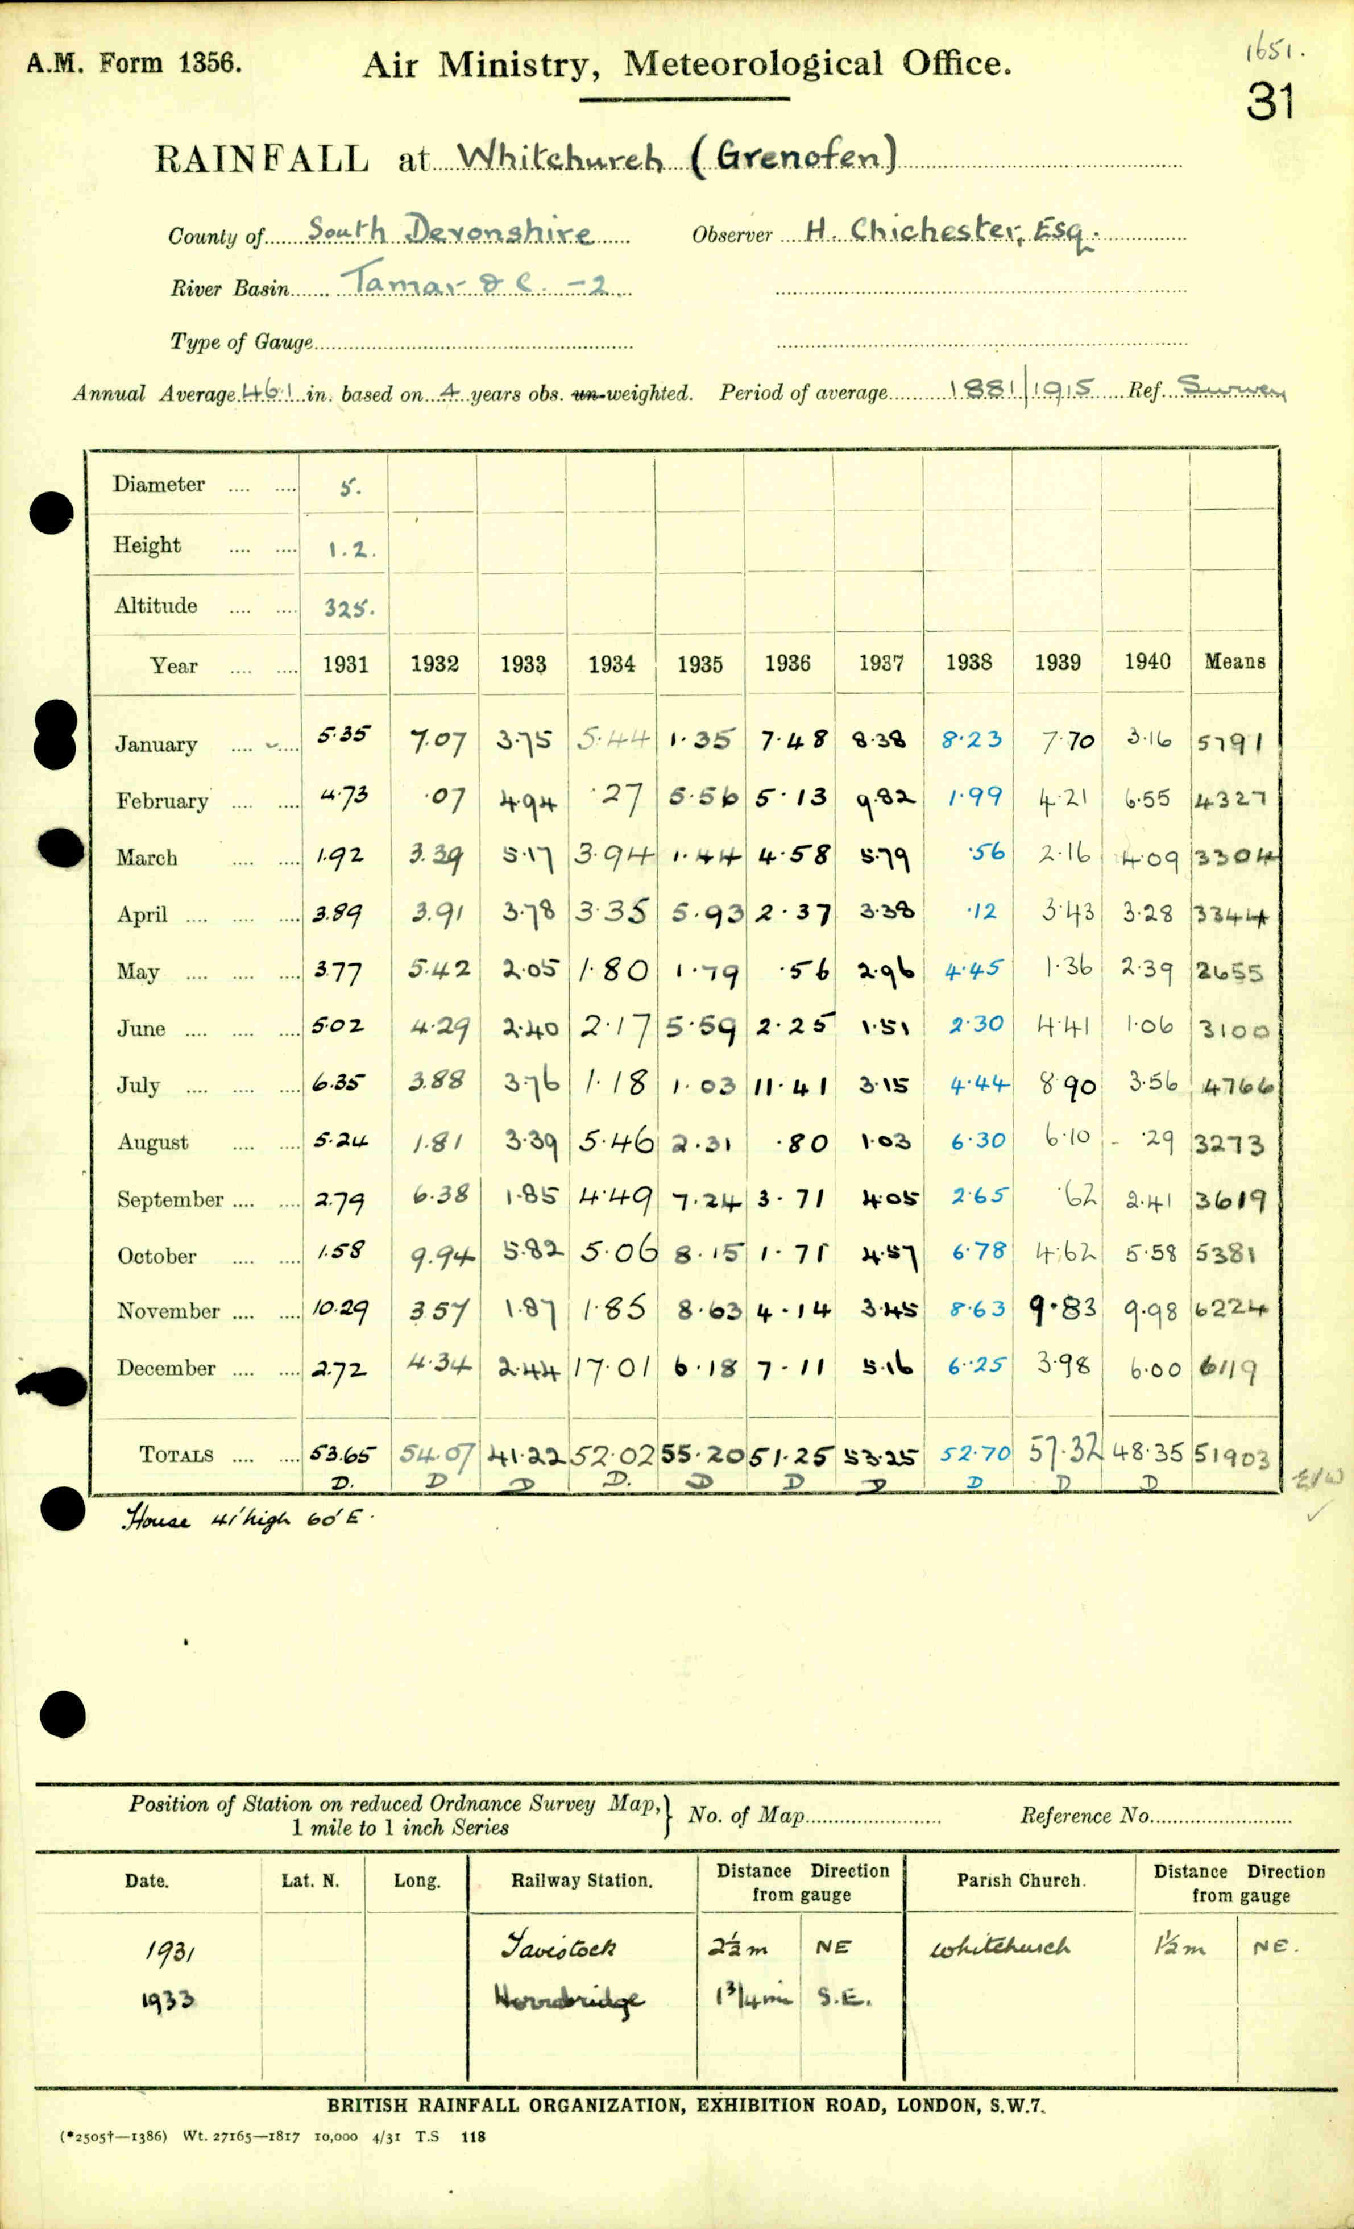 1651.
A.M. Form 1356. Air Ministry, Meteorological Office.
31
RAINFALL at Whitchurch (Grenofen)
County of South Devonshire Observer H. Chichester, Esq.
River Basin Tamar &c. -2
Type of Gauge
Annual Average 46.1 in. based on 4 years obs. un-weighted. Period of average 1881/1915 Ref. Survey
Diameter 5.
Height 1.2.
Altitude 325.
Year 1931 1932 1933 1934 1935 1936 1937 1938 1939 1940 Means
January 5.35 7.07 3.75 5.44 1.35 7.48 8.38 8.23 7.70 3.16 5791
February 4.73 .07 4.94 .27 5.56 5.13 9.82 1.99 4.21 6.55 4327
March 1.92 3.39 5.17 3.94 1.44 4.58 5.79 .56 2.16 4.09 3304
April 3.89 3.91 3.78 3.35 5.93 2.37 3.38 .12 3.43 3.28 3344
May 3.77 5.42 2.05 1.80 1.79 .56 2.96 4.45 1.36 2.39 2655
June 5.02 4.29 2.40 2.17 5.59 2.25 1.51 2.30 4.41 1.06 3100
July 6.35 3.88 3.76 1.18 1.03 11.41 3.15 4.44 8.90 3.56 4766
August 5.24 1.81 3.39 5.46 2.31 .80 1.03 6.30 6.10 .29 3273
September 2.79 6.38 1.85 4.49 7.24 3.71 4.05 2.65 .62 2.41 3619
October 1.58 9.94 5.82 5.06 8.15 1.71 4.57 6.78 4.62 5.58 5381
November 10.29 3.57 1.87 1.85 8.63 4.14 3.45 8.63 9.83 9.98 6224
December 2.72 4.34 2.44 17.01 6.18 7.11 5.16 6.25 3.98 6.00 6119
TOTALS 53.65 54.07 41.22 52.02 55.20 51.25 53.25 52.70 57.32 48.35 51903
D. D D D. D D D D D D
House 41' high 60' E.
Position of Station on reduced Ordnance Survey Map, } No. of Map Reference No.
1 mile to 1 inch Series
Date. Lat. N. Long. Railway Station. Distance Direction from gauge Parish Church. Distance Direction from gauge
1931 Tavistock 2½ m NE Whitchurch 1½ m NE.
1933 Horrabridge 1 3/4 mi S.E.
BRITISH RAINFALL ORGANIZATION, EXHIBITION ROAD, LONDON, S.W.7.
(*2505†—1386) Wt. 27165—1817 10,000 4/31 T.S 118